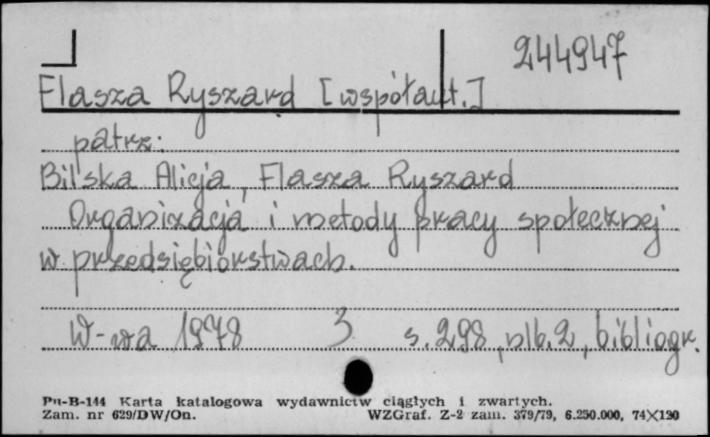 244947
Flasza Ryszard [współaut.]
patrz:
Bilska Alicja, Flasza Ryszard
Organizacja i metody pracy społecznej
w przedsiębiorstwach.
W-wa 1978 3 s. 298, nlb. 2, bibliogr.
Pu-B-144 Karta katalogowa wydawnictw ciągłych i zwartych.
Zam. nr 629/DW/On. WZGraf. Z-2 zam. 379/79, 6.250.000, 74×120